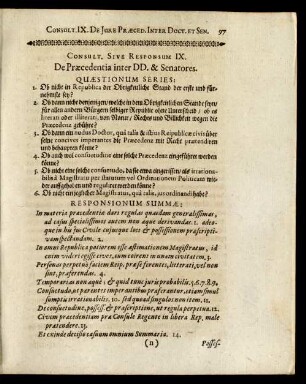 CONSULT. IX. DE JURE PRÆCED. INTER DOCT. ET SEN. 97
CONSULT. SIVE RESPONSUM IX.
De Præcedentia inter DD. & Senatores.
QUÆSTIONUM SERIES:
1. Ob nicht in Republica der Obrigkeitliche Stand der erste und für-
nehmste sey?
2. Ob dann nicht derjenigen/ welche in dem Obrigkeitlichen Stand seyn/
für allen andern Bürgern selbiger Republic ohne Unterscheid / ob sie
literati oder illiterati, von Natur / Rechts und Billichkeit wegen die
Præcedenz gebühre?
3. Ob dann ein nudus Doctor, qui talis & istius Reipublicæ civis über
solche concives imperantes die Præcedenz mit Recht prætendiren
und behaupten könne?
4. Ob auch wol consuetudine eine solche Præcedenz eingeführet werden
könne?
5. Ob nicht eine solche consuetudo, da sie etwa eingerissen/ als irrationa-
bilis à Magistratu per statutum vel Ordinationem Politicam wie-
der auffgehaben und reguliret werden könne?
6. Ob nicht ein jeglicher Magistratus, quà talis, jus ordinandi habe?
RESPONSIONUM SUMMÆ:
In materia præcedentiæ dari regulas quasdam generalissimas,
ad casus specialissimos autem non æque derivandas. 1. adeo-
que in his jus Civile cujusque loci & possessionem præscripti-
vam spectandam. 2.
In omni Republica potiorem esse æstimationem Magistratuum, id
enim videri egisse cives, cum coirent in unam civitatem. 3.
Personas perpetuò faciem Reip. præ se ferentes, litterati, vel non
sint, præferendas. 4.
Temporarias non æquè: & quid tunc juris probabilis. 5.6.7.8.9.
Consuetudo, ut parentes imperantibus præferantur, etiam simul
sumptis irrationabilis. 10. sed quoad singulos non item. 11.
De consuetudine, possess. & præscriptione, ut regula perpetua. 12.
Civem præcedentiam præ Consule Regente in libera Rep. male
prætendere. 13.
Et exinde decisio casuum omnium Summaria. 14.
(n) Possis-